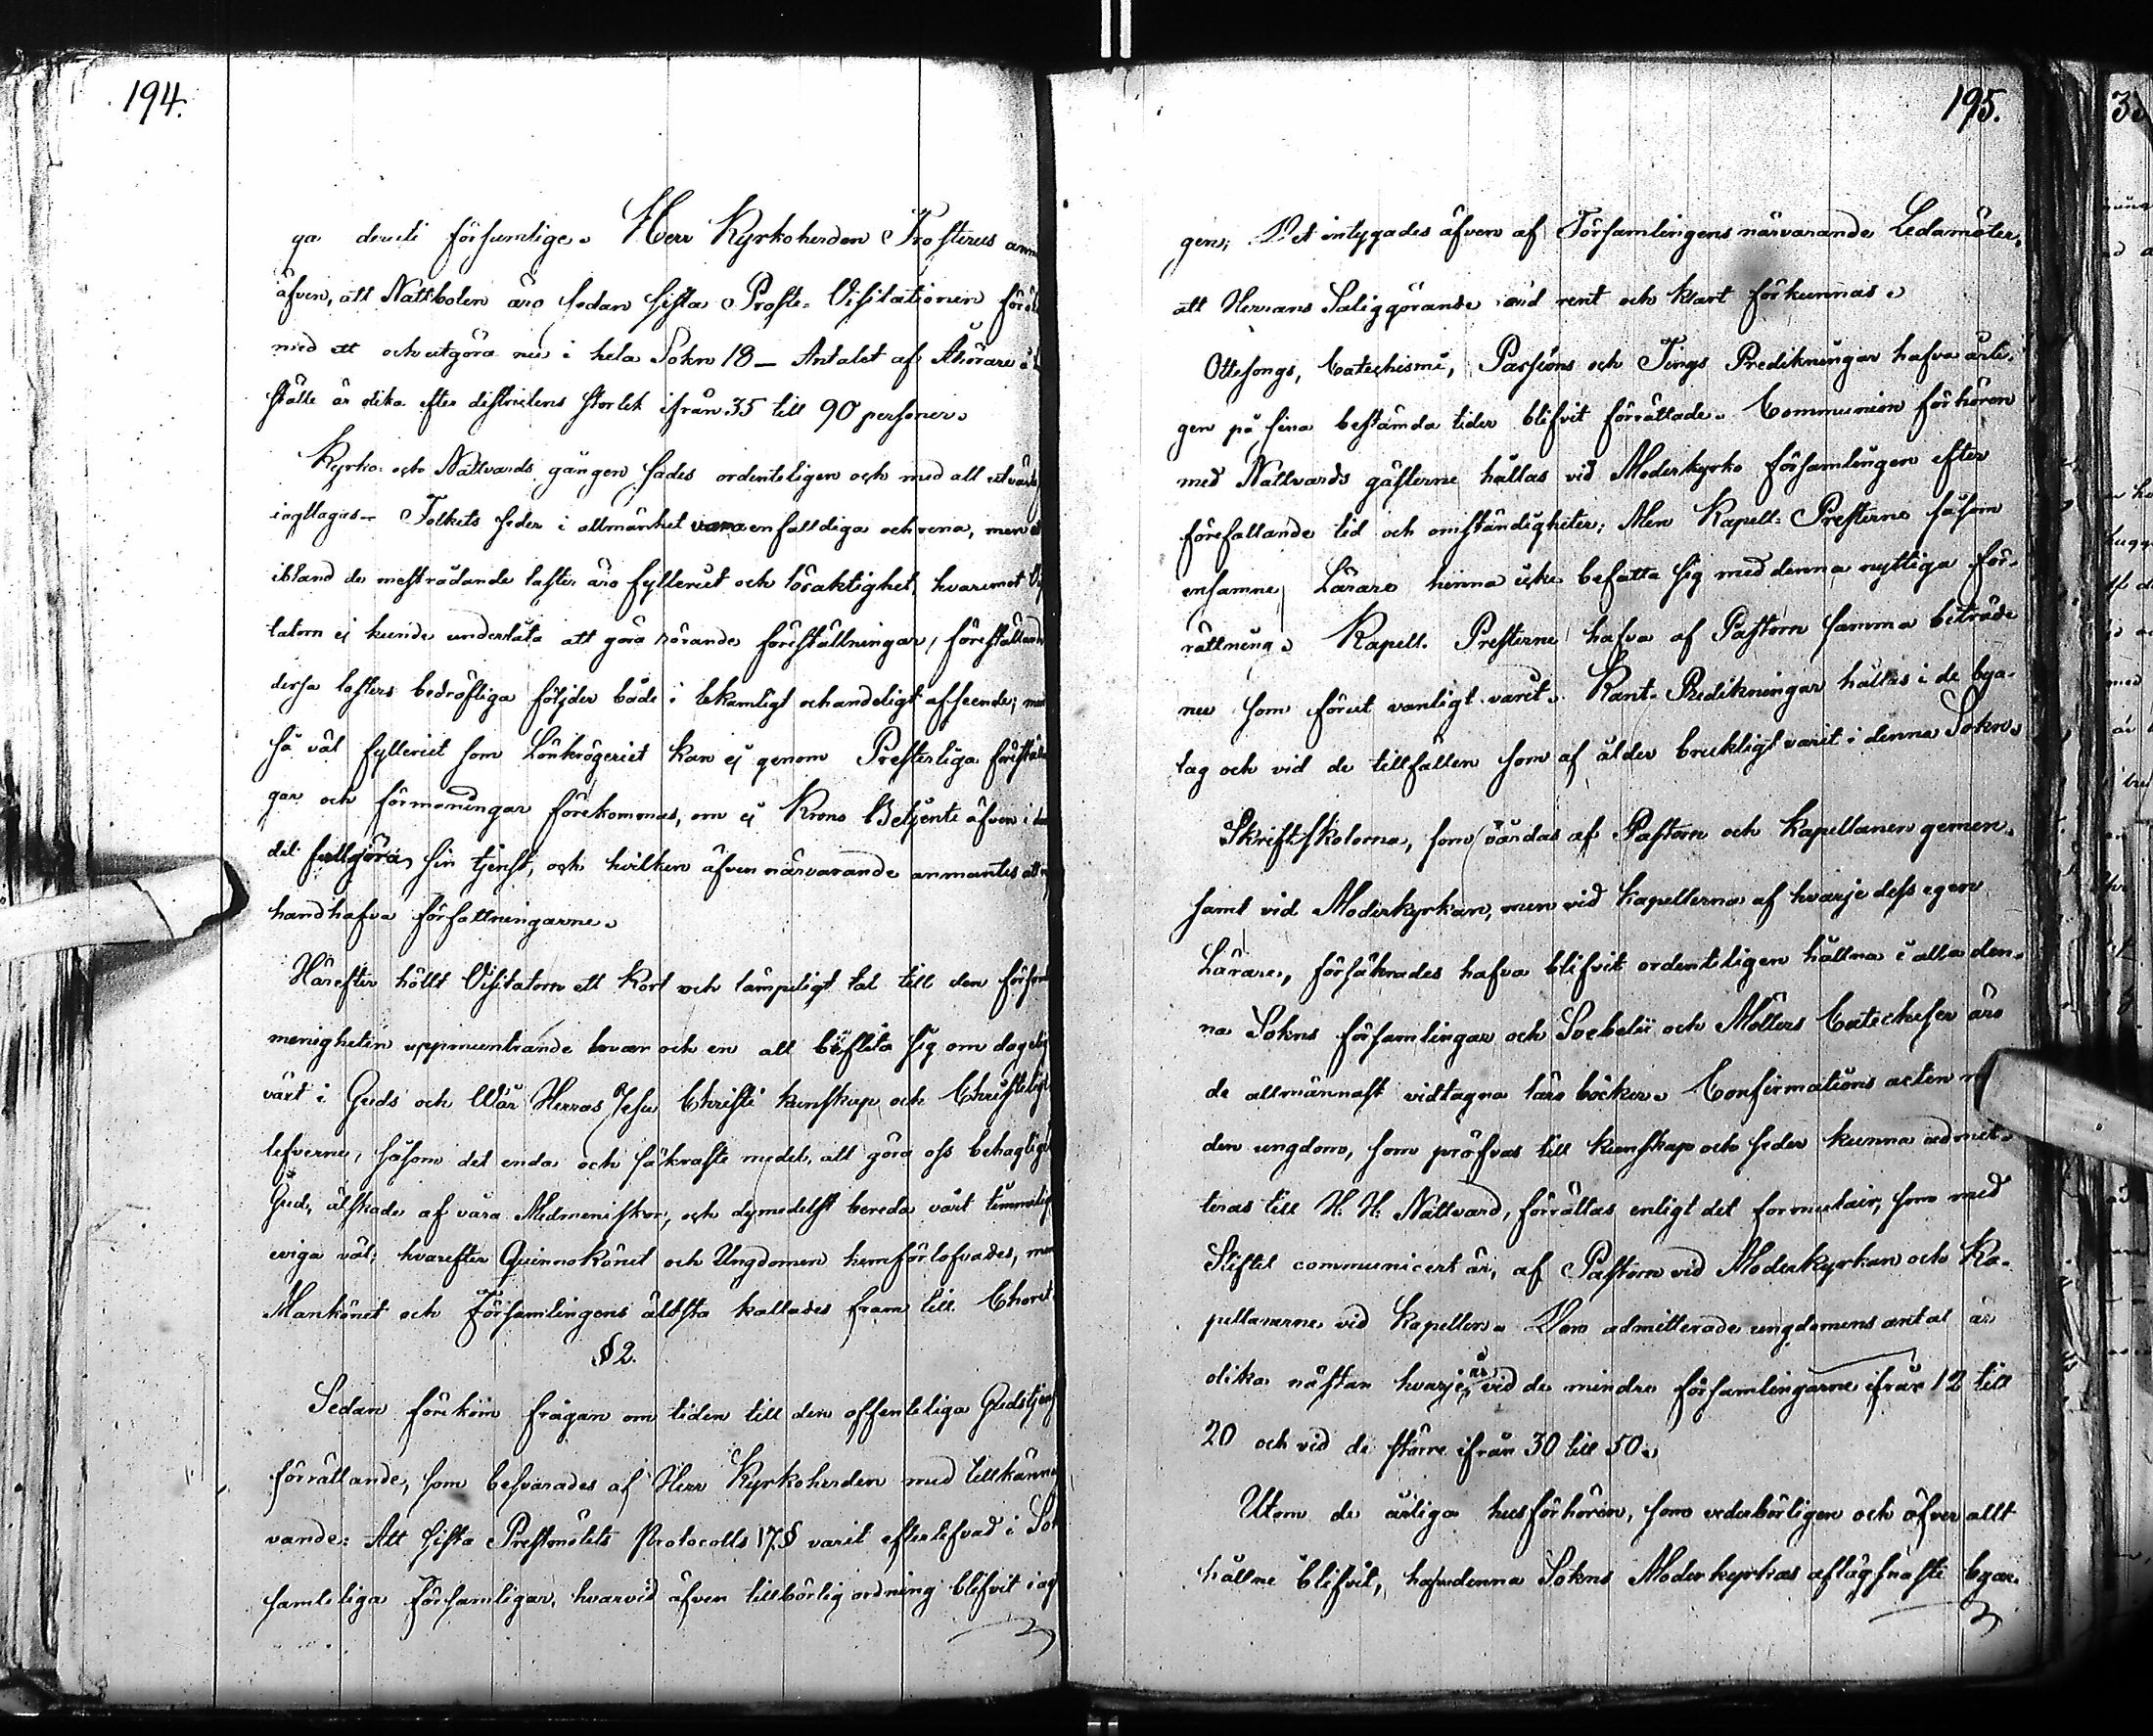 194.
ga deruti försumlige. Herr Kyrkoherden Frosterus
äfven, att Nattbolen äro sedan sista Proste-Visitationen
med ett och utgöra nu i hela Sokn 18 — Antalet af Åhörare
ställe är olika efter districtens storlek ifrån 35 till 90 personer.
Kyrko- och Nattvards gången sades ordenteligen och med all
iagttagas. — Folkets seder i allmänhet vara enfalldiga och rena, men
ibland de mest rådande laster äro fylleriet och lösaktighet, hvaremot
tatorn ej kunde underlåta att göra rörande föreställningar,
dessa lasters bedröfliga följder både i lekamligt och andeligt afseende;
så väl fylleriet som Lönkrögeriet kan ej genom Presterliga
gar och förmaningar förekommas, om ej Krono Betjente äfven i
del fullgöra sin tjenst, och hvilken äfven närvarande anmantes
handhafva författningarne.
Härefter höllt Visitatorn ett kort och lämpeligt tal till den
menigheten uppmuntrande hvar och en att beflita sig om
växt i Guds och Wår Herras Jesu Christi kunskap och
lefverne, såsom det enda och säkraste medel, att göra oss
Gud, älskade af våra Medmeniskor, och dymedelst bereda vårt
eviga väl; hvarefter Quinnokönet och Ungdomen hemförlofvades,
Mankönet och Församlingens äldsta kallades fram till
§ 2.
Sedan förekom frågan om tiden till den offenteliga
förrättande, som besvarades af Herr Kyrkoherden med
vande: Att sista Prestmötets Protocolls 17. § varit efterlefvad i
samteliga Församligar, hvarvid äfven tillbörlig ordning blifvit
195.
gen; Det intygades äfven af Församlingens närvarande Ledamöter,
att Herrans Saliggörande ord rent och klart förkunnas.
Ottesongs, Catechismi, Passions och Tings Predikningar hafva årli-
gen på sina bestämda tider blifvit förrättade. Communion förhören
med Nattvards gästerne hållas vid Moderkyrko församlingen efter
förefallande tid och omständigheter; Men Kapell-Presterne såsom
ensamne Lärare hinna icke befatta sig med denna nyttiga för-
rättning. Kapell. Presterne hafva af Pastorn samma beträde
nu som förut vanligt varit. Kant-Predikningar hålles i de bya-
lag och vid de tillfällen som af ålder brukligt varit i denna Sokn.
Skriftskolorna, som vårdas af Pastorn och Kapellanen gemen-
samt vid Moderkyrkan, men vid Kapellerna af hvarje dess egen
Lärare, försäkrades hafva blifvit ordenteligen hållna i alla den-
na Sokns församlingar och Svebelii och Möllers Catecheser äro
de allmännast vidtagna läro böcker. Confirmations acten
den ungdom, som pröfvas till kunskap och seder kunna admit-
teras till H. H. Nattvard, förrättas enligt det formulair, som med
Stiftet communicert är, af Pastorn vid Moderkyrkan och Ka-
pellanerne vid Kapellen. Den admitterade ungdomens antal är
olika nästan hvarje år, vid de mindre församlingarne ifrån 12 till
20 och vid de större ifrån 30 till 50.
Utom de årliga husförhören, som vederbörligen och öfver allt
hållne blifvit, hafva denna Sokns Moderkyrkas aflägsnaste byar